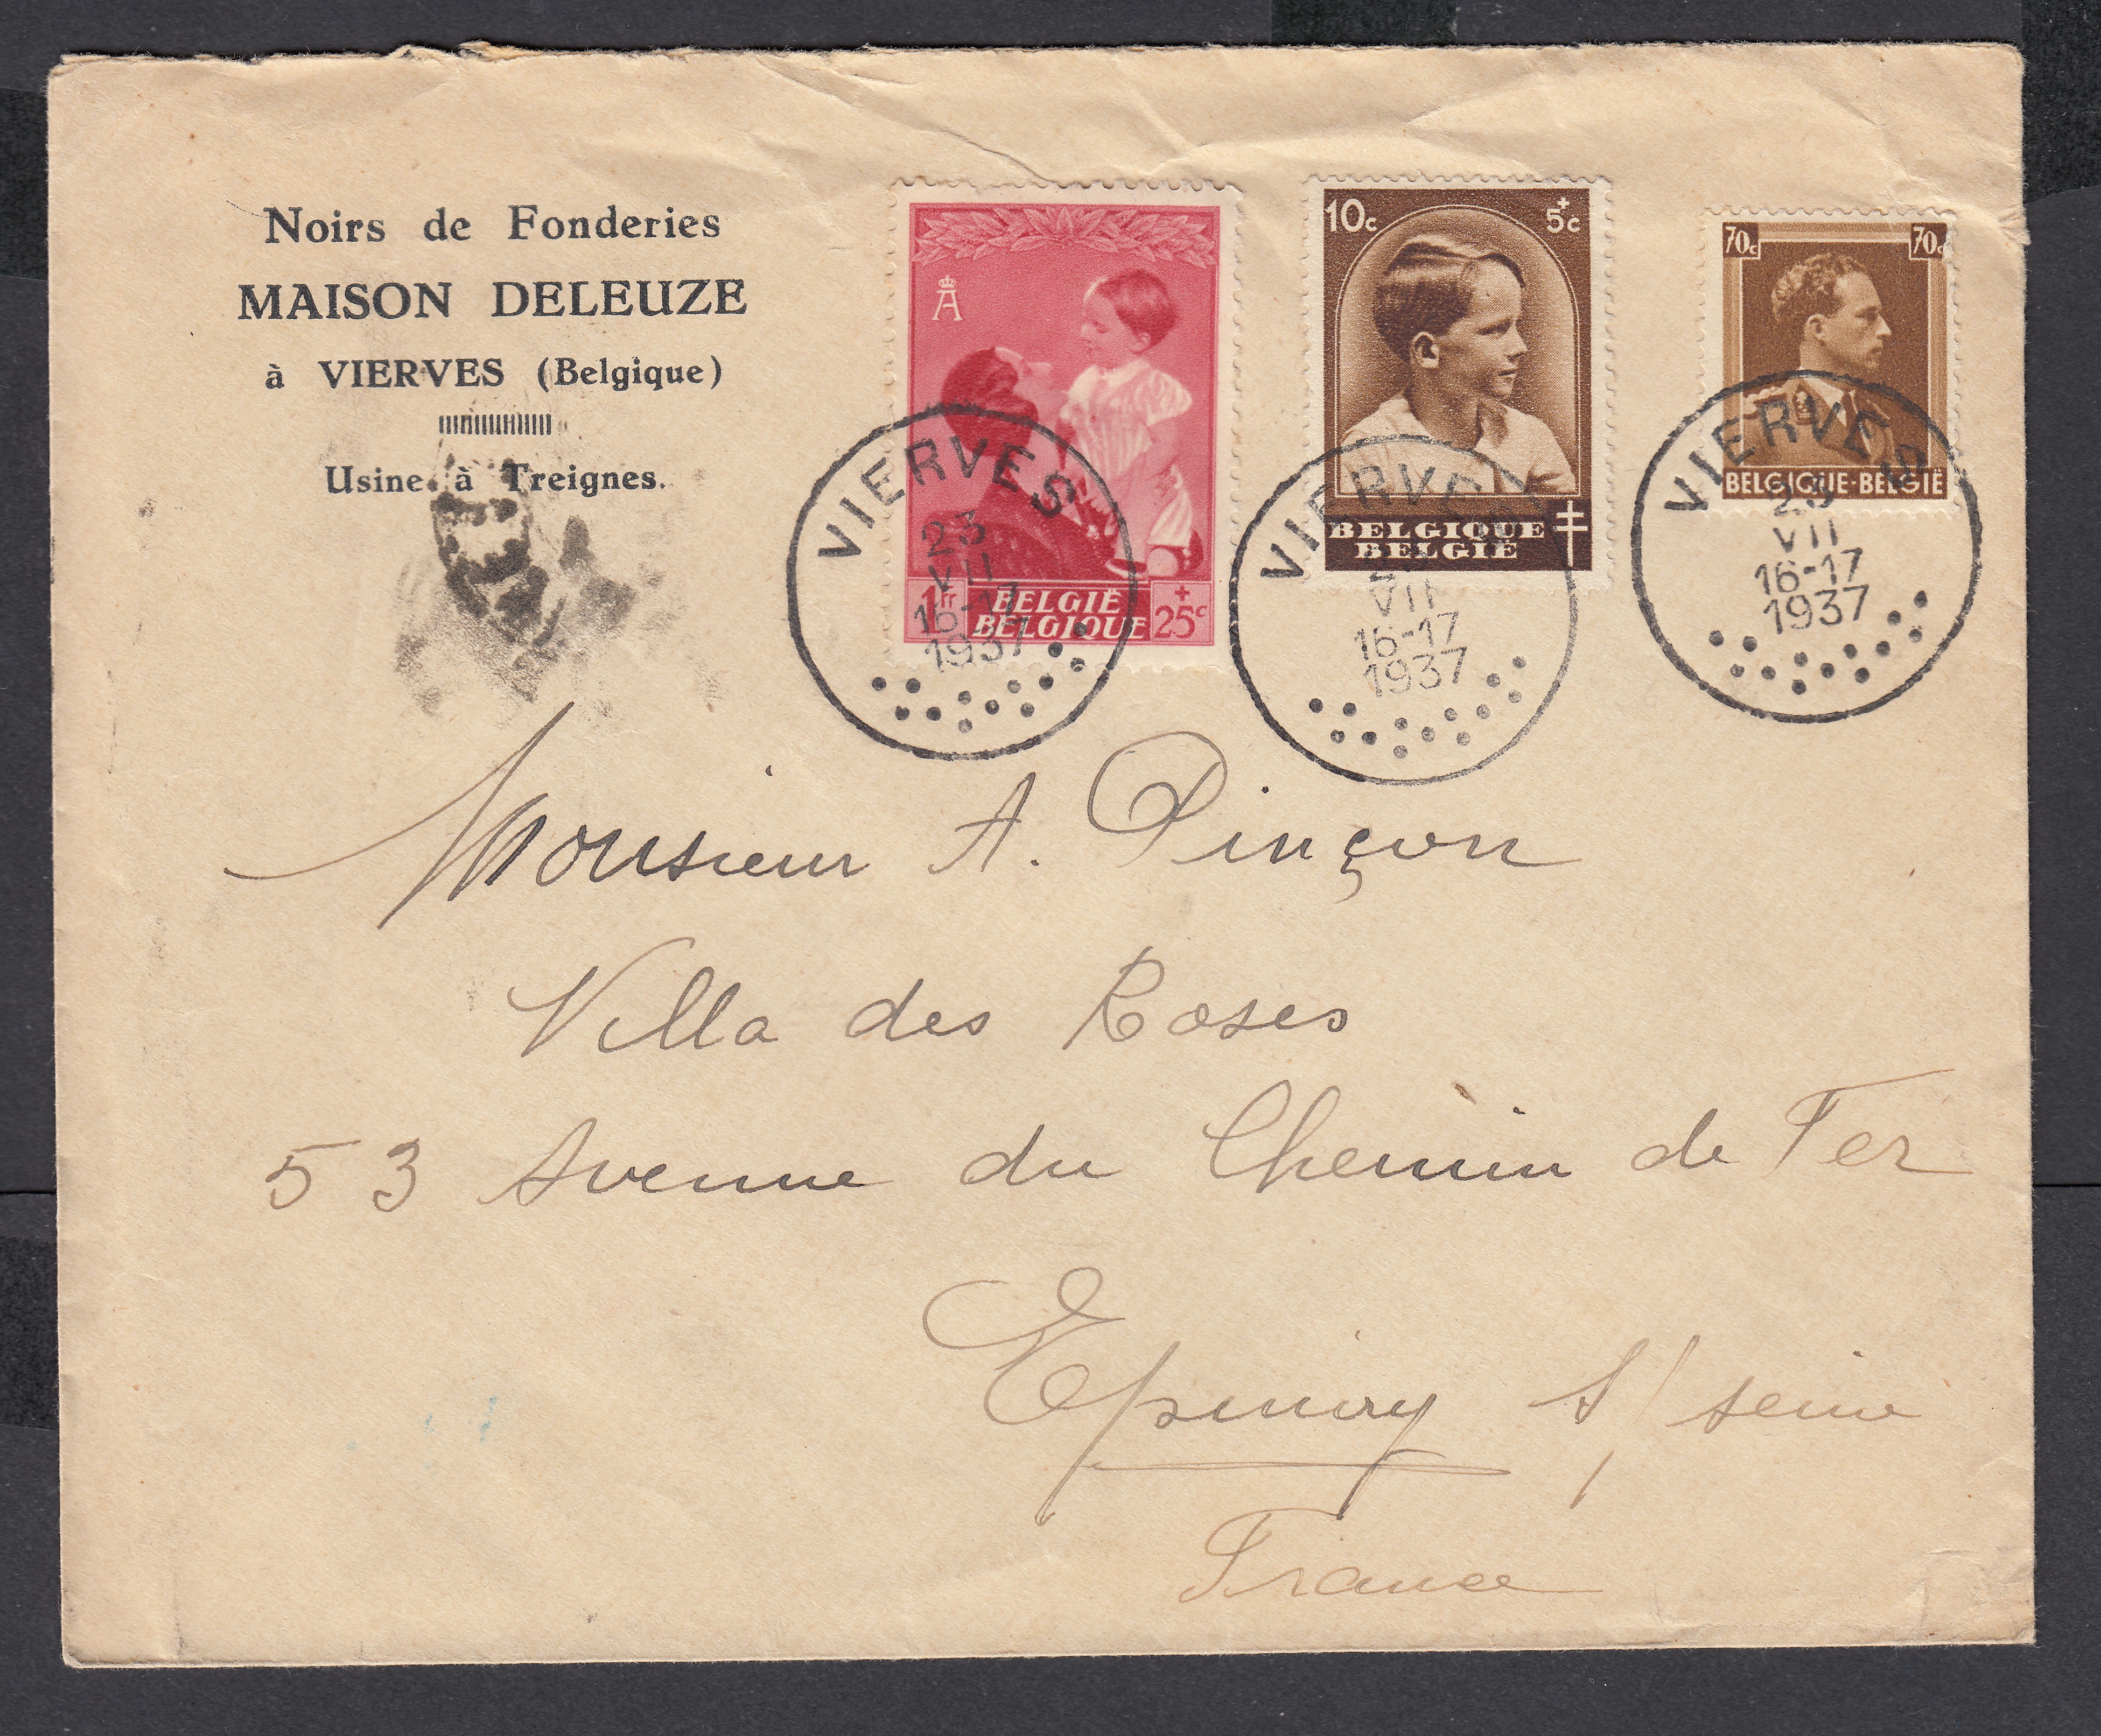 Noirs de Fonderies
MAISON DELEUZE
à VIERVES (Belgique)
Usine à Treignes.
A
1Fr
BELGIË
BELGIQUE
+
25c
10c
+
5c
BELGIQUE
BELGIË
70c
70c
BELGIQUE-BELGIË
VIERVES
23
VII
16-17
1937
VIERVES
23
VII
16-17
1937
VIERVES
23
VII
16-17
1937
Monsieur A. Pinçon
Villa des Roses
53 Avenue du Chemin de Fer
Epinay s/ seine
France